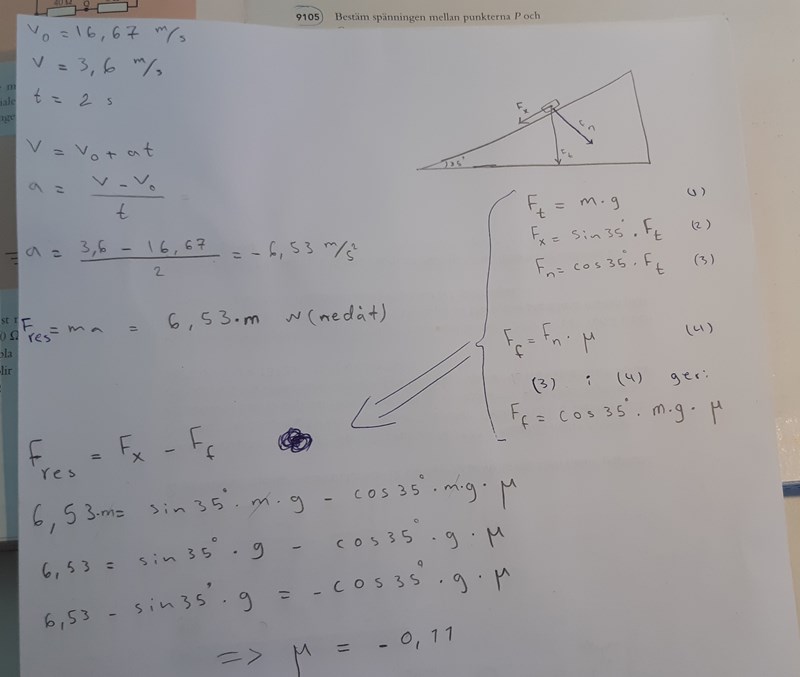 9105 Bestäm spänningen mellan punkterna P och
V₀ = 16,67 m/s
V = 3,6 m/s
t = 2 s
V = V₀ + at
a = (V - V₀) / t
a = (3,6 - 16,67) / 2 = -6,53 m/s²
F_res = ma = 6,53·m N (nedåt)
F_x
F_n
35°
F_t = m·g (1)
F_x = sin35°·F_t (2)
F_n = cos35°·F_t (3)
F_f = F_n·μ (4)
(3) i (4) ger:
F_f = cos35°·m·g·μ
F_res = F_x - F_f
6,53·m = sin35°·m·g - cos35°·m·g·μ
6,53 = sin35°·g - cos35°·g·μ
6,53 - sin35°·g = -cos35°·g·μ
=> μ = -0,11